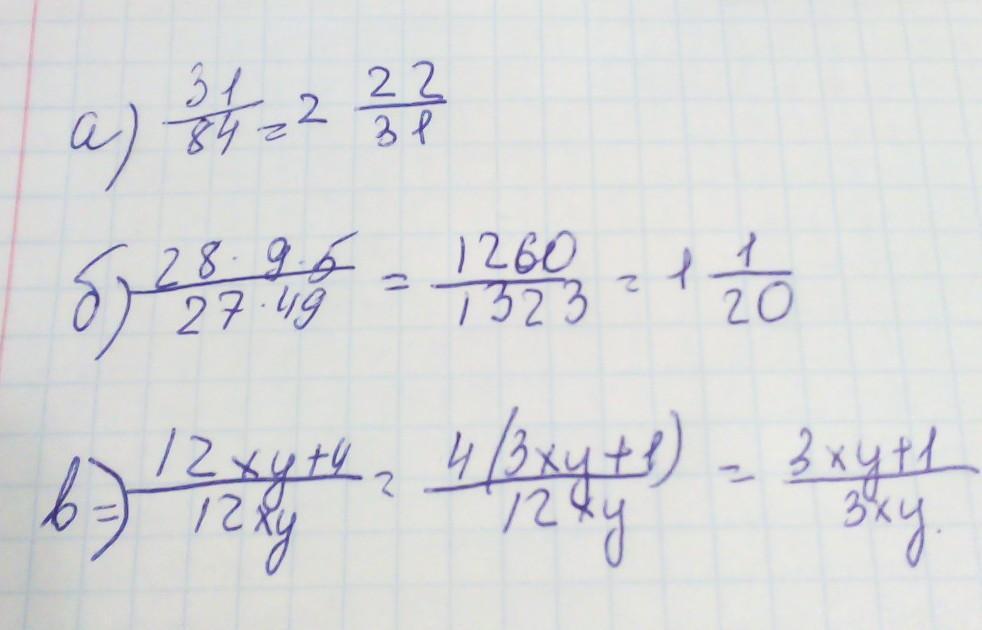 а) 31/84 = 2 22/31
б) 28·9·5/27·49 = 1260/1323 = 1 1/20
в=) 12xy+4/12xy = 4(3xy+1)/12xy = 3xy+1/3xy.